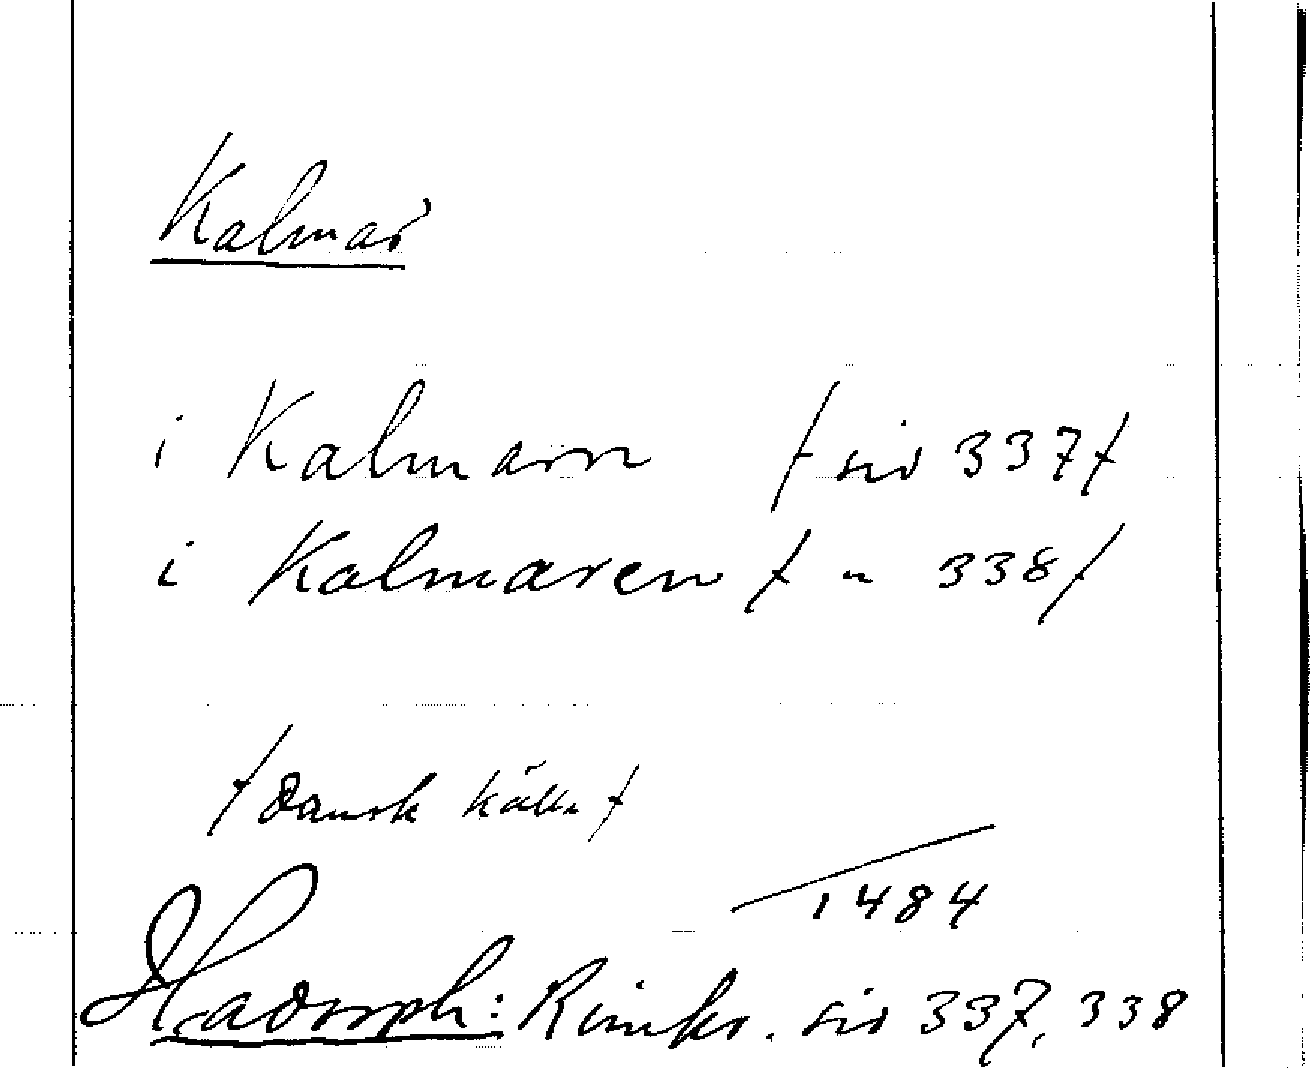 Kalmar
i Kalmarn / sid 337/
i Kalmaren / " 338/
/dansk källa/
1484
Hadorph: Rimkr. sid 337, 338